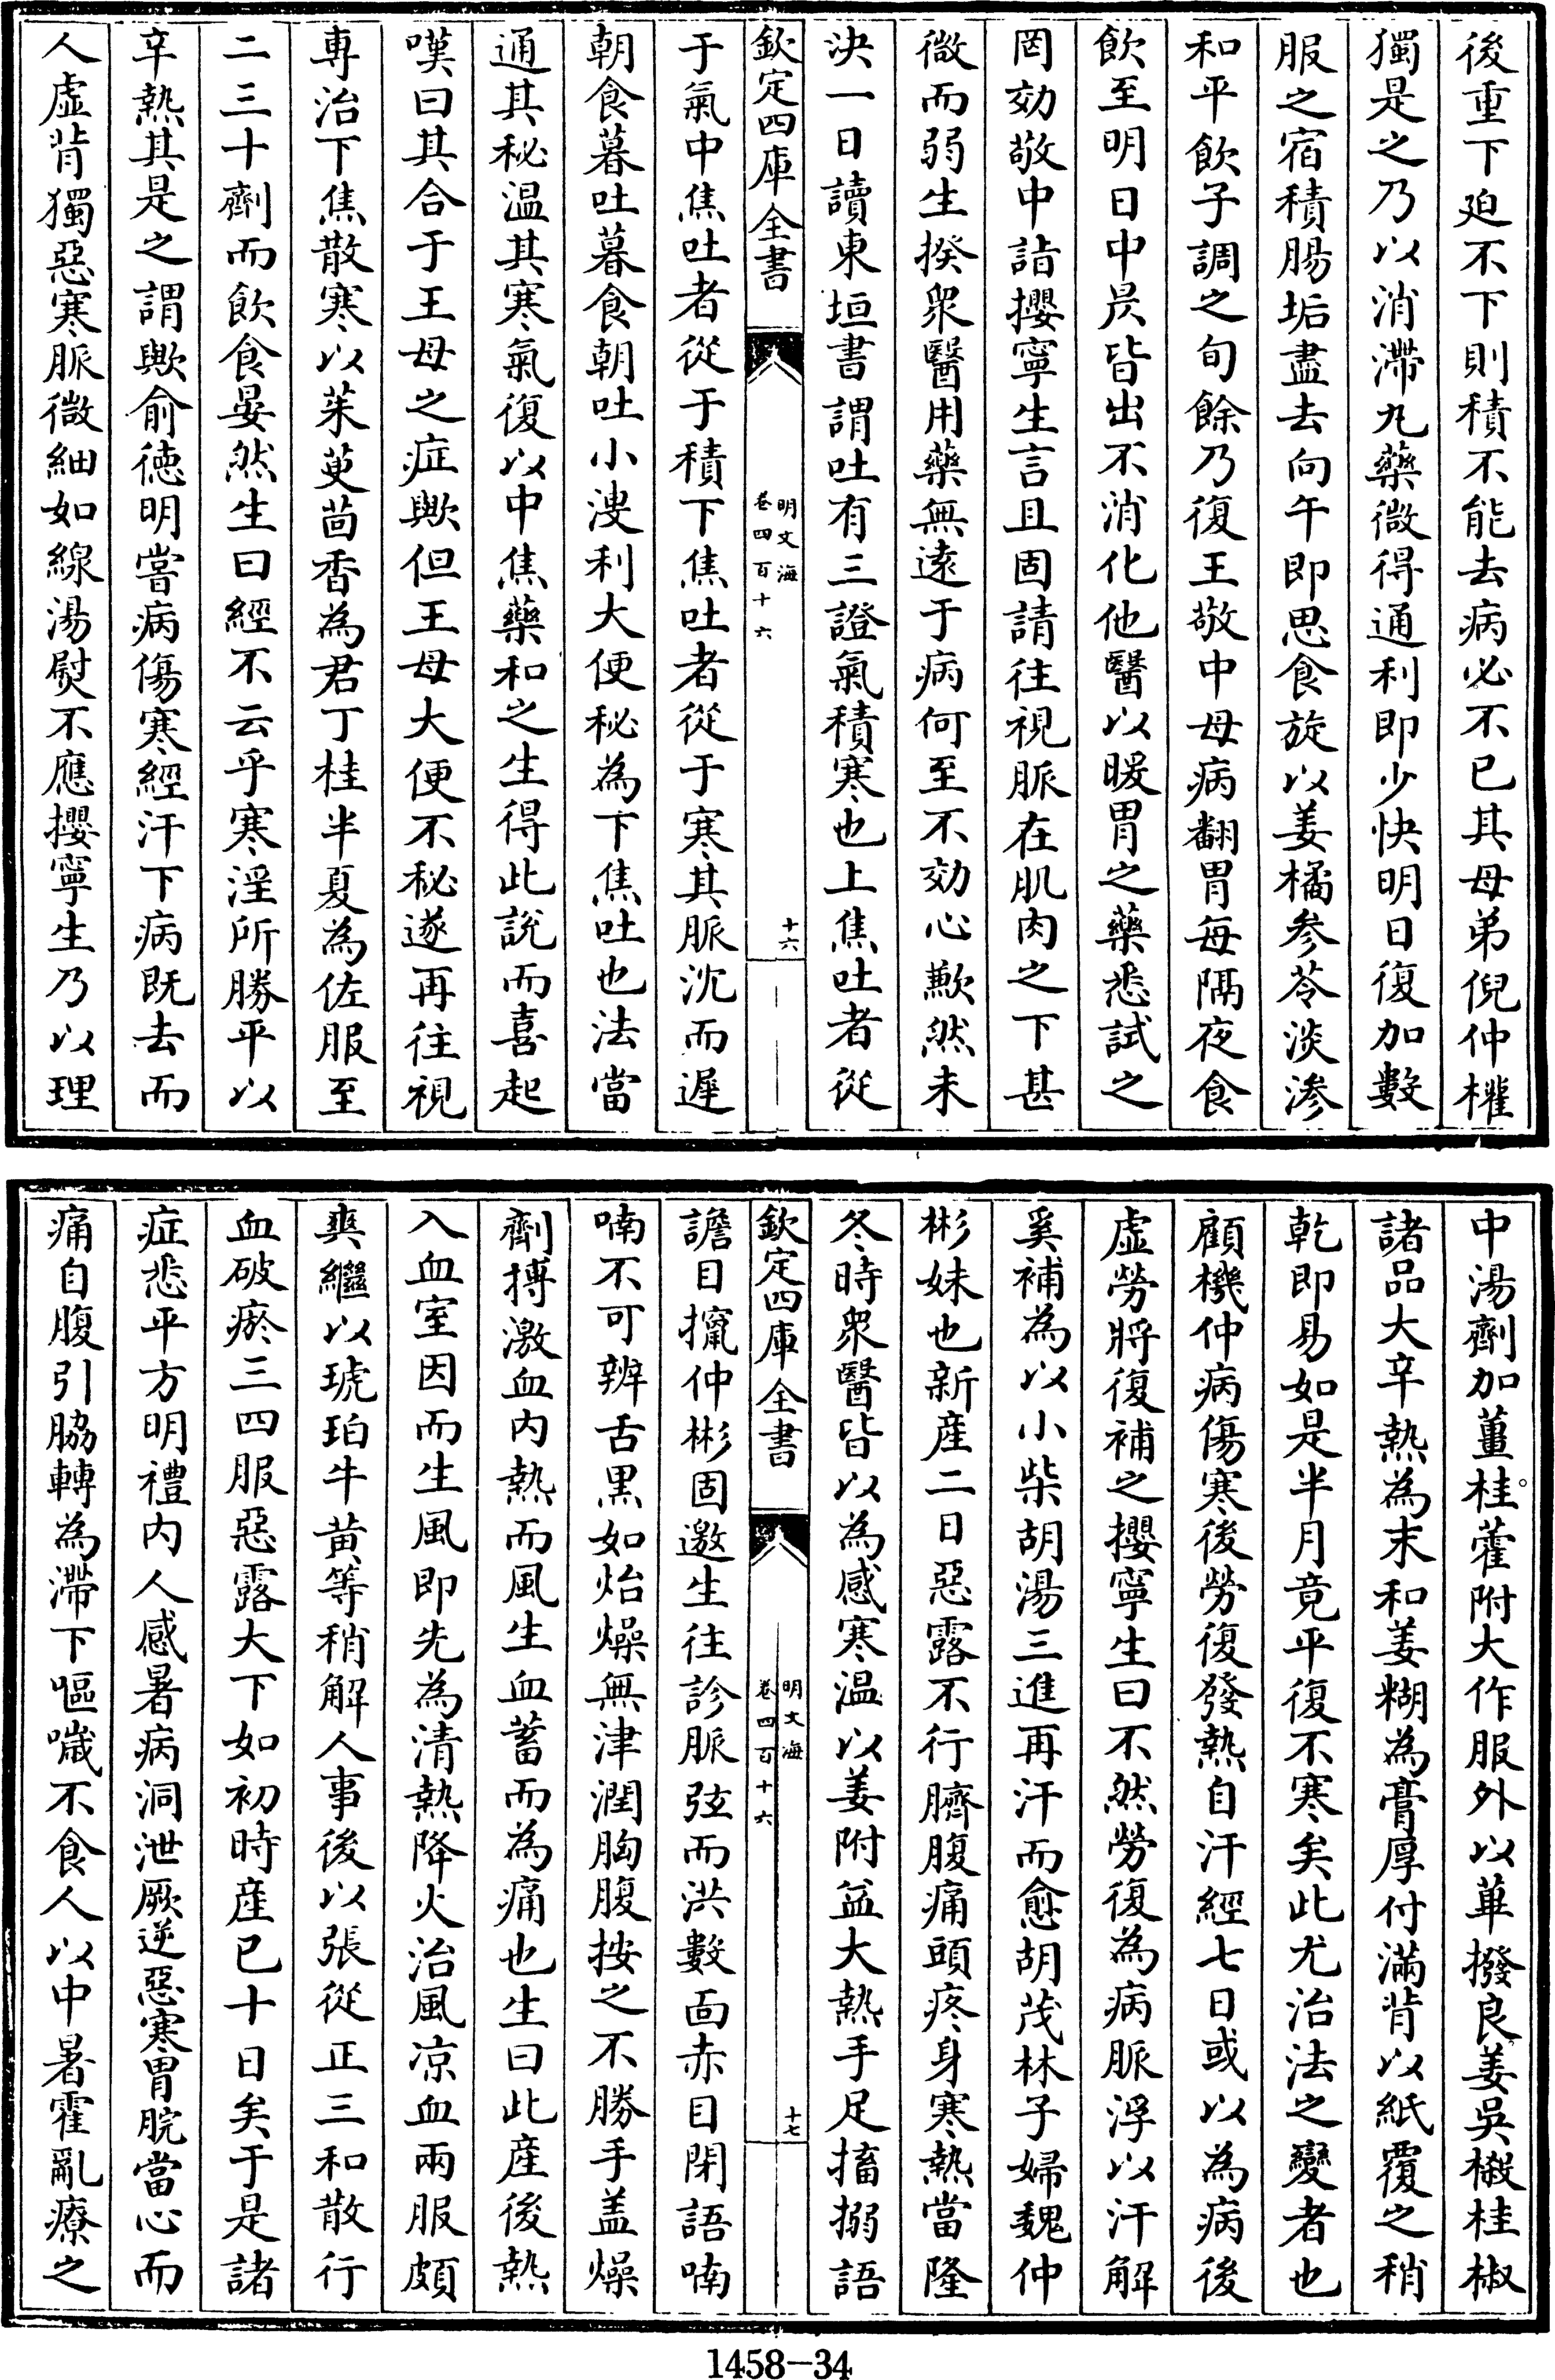 後重下迫不下則積不能去病必不已其母弟倪仲權
獨是之乃以消滯丸藥微得通利即少快明日復加數
服之宿積腸垢盡去向午即思食旋以姜橘参苓淡滲
和平飲子調之旬餘乃復王敬中母病翻胃每隔夜食
飲至明日中昃皆出不消化他醫以暖胃之藥悉試之
罔効敬中詣攖寧生言且固請往視脈在肌肉之下甚
微而弱生揆衆醫用藥無遠于病何至不効心歉然未
決一日讀東垣書謂吐有三證氣積寒也上焦吐者從
欽定四庫全書
明文海
卷四百十六
十六
于氣中焦吐者從于積下焦吐者從于寒其脈沈而遲
朝食暮吐暮食朝吐小溲利大便秘為下焦吐也法當
通其秘温其寒氣復以中焦藥和之生得此說而喜起
嘆曰其合于王母之症歟但王母大便不秘遂再往視
專治下焦散寒以茱萸茴香為君丁桂半夏為佐服至
二三十劑而飲食晏然生曰經不云乎寒淫所勝平以
辛熱其是之謂歟俞徳明嘗病傷寒經汗下病既去而
人虛背獨惡寒脈微細如線湯熨不應攖寧生乃以理
中湯劑加薑桂藿附大作服外以蓽撥良姜吳椒桂椒
諸品大辛熱為末和姜糊為膏厚付滿背以紙覆之稍
乾即易如是半月竟平復不寒矣此尤治法之變者也
顧機仲病傷寒後勞復發熱自汗經七日或以為病後
虛勞將復補之攖寧生曰不然勞復為病脈浮以汗解
奚補為以小柴胡湯三進再汗而愈胡茂林子婦魏仲
彬妹也新産二日惡露不行臍腹痛頭疼身寒熱當隆
冬時衆醫皆以為感寒温以姜附益大熱手足搐搦語
欽定四庫全書
明文海
卷四百十六
十七
譫目攛仲彬固邀生往診脈弦而洪數面赤目閉語喃
喃不可辨舌黑如炲燥無津潤胸腹按之不勝手盖燥
劑摶激血内熱而風生血蓄而為痛也生曰此産後熱
入血室因而生風即先為清熱降火治風凉血兩服頗
爽繼以琥珀牛黄等稍解人事後以張從正三和散行
血破瘀三四服惡露大下如初時産已十日矣于是諸
症悉平方明禮内人感暑病洞泄厥逆惡寒胃脘當心而
痛自腹引脇轉為滯下嘔噦不食人以中暑霍亂療之
1458-34